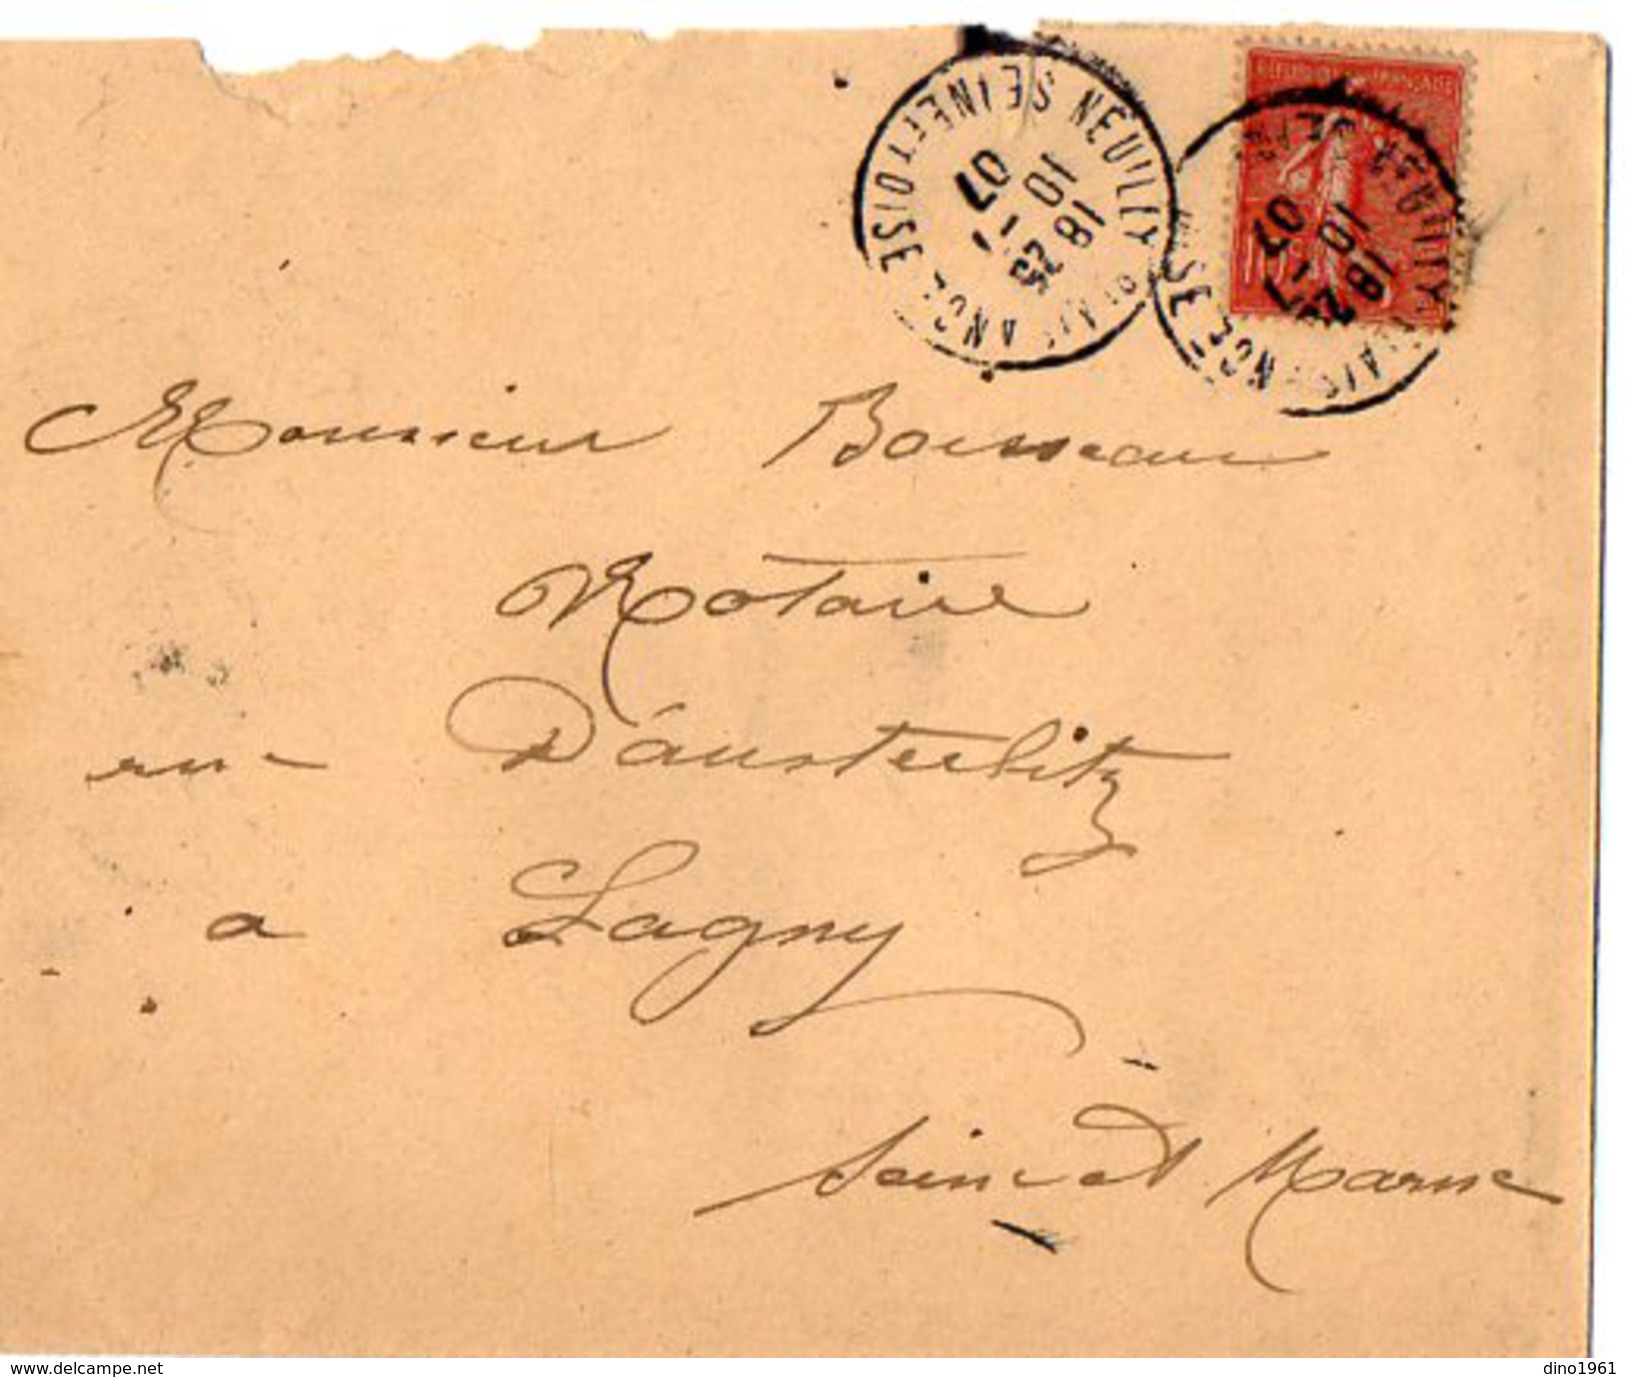 NEUILLY PLAISANCE SEINE ET OISE
18 25
10 -1
07
REPUBLIQUE FRANÇAISE
18 25
10 -1
07
Monsieur Boisseau
Notaire
rue D'austerlitz
a Lagny
Seine et Marne
www.delcampe.net
dino1961